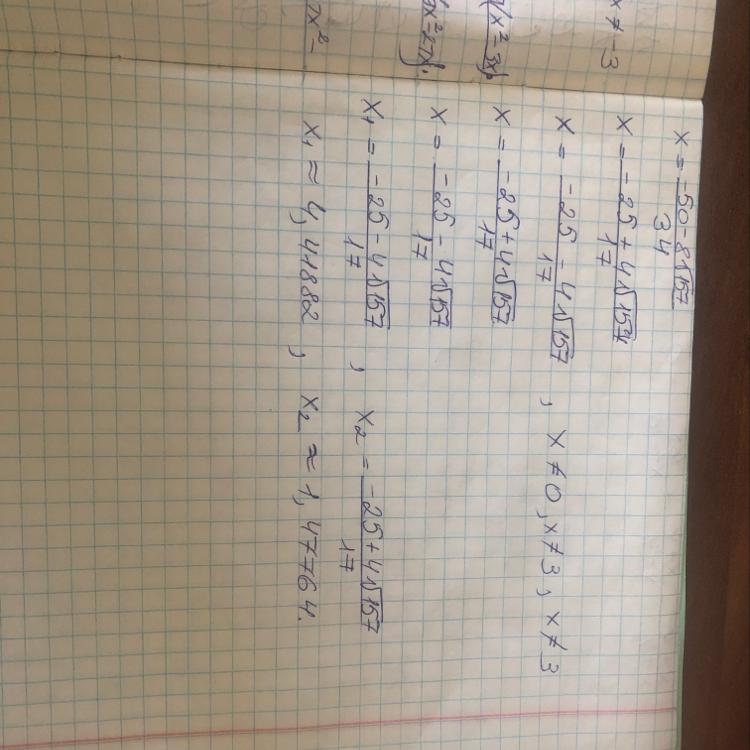 x ≠ -3
x = (-50 - 8√157)/34
x = (-25 + 4√157)/17
x = (-25 - 4√157)/17 , x ≠ 0, x ≠ 3, x ≠ 3
x = (-25 + 4√157)/17
x = (-25 - 4√157)/17
x₁ = (-25 - 4√157)/17 , x₂ = (-25 + 4√157)/17
x₁ ≈ 4,41882 , x₂ ≈ 1,47764.